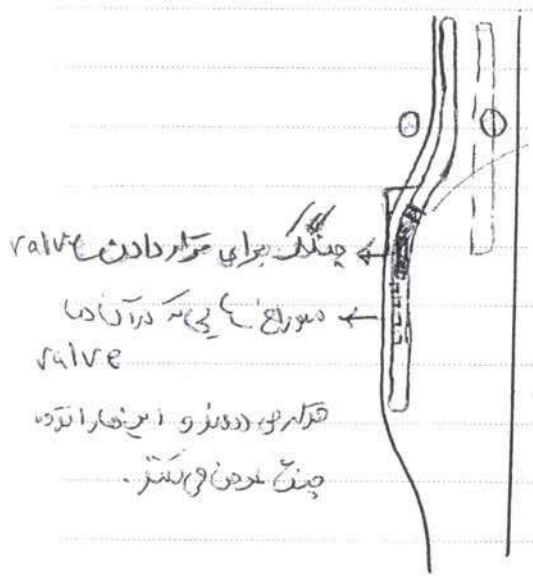 چنگک برای قرار دادن valve
سوراخ هایی که در آن ها
valve
قرار می دهند و این ها را
می کنند.